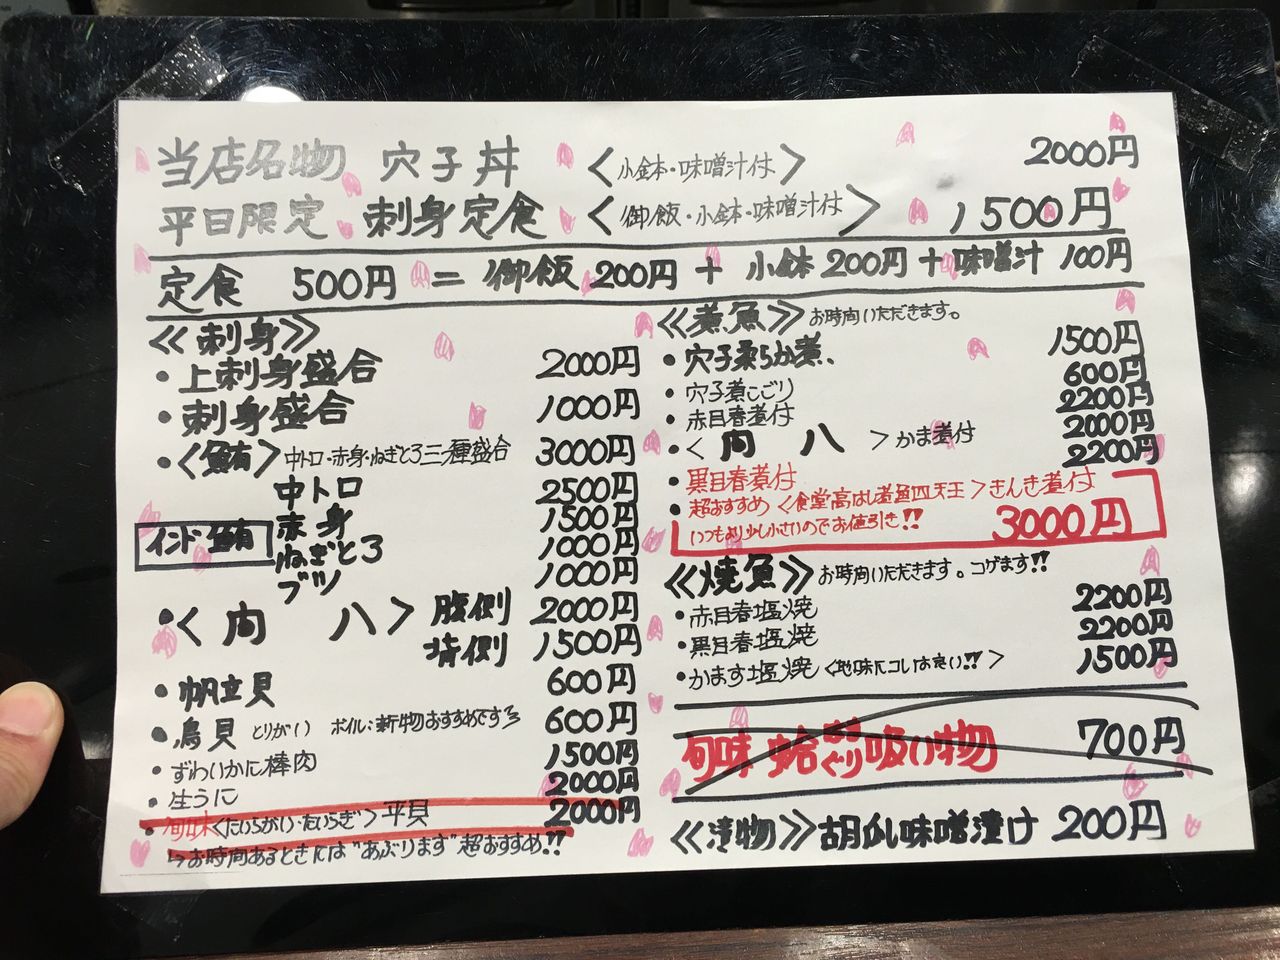 当店名物 穴子丼 <小鉢・味噌汁付> 2000円
平日限定 刺身定食 <御飯・小鉢・味噌汁付> 1500円
定食 500円 = 御飯 200円 + 小鉢 200円 + 味噌汁 100円
≪刺身≫
・上刺身盛合 2000円
・刺身盛合 1000円
・<鮪> 中トロ・赤身・ねぎとろ三種盛合 3000円
インド鮪
中トロ 2500円
赤身 1500円
ねぎとろ 1000円
ブツ 1000円
・<向 八> 腹側 2000円
背側 1500円
・帆立貝 600円
・鳥貝 とりがい ボイル:新物おすすめです 600円
・ずわいかに棒肉 1500円
・生うに 2000円
・旬味<たいらがい・たいらぎ>平貝 2000円
↳お時間あるときには"あぶります"超おすすめ!!
≪煮魚≫ お時間いただきます。
・穴子柔らか煮、 1500円
・穴子煮こごり 600円
・赤目春煮付 2200円
・<向 八>かま煮付 2000円
・黒目春煮付 2200円
・超おすすめ<食堂高はし煮魚四天王>きんき煮付
いつもより少し小さいのでお値引き!! 3000円
≪焼魚≫ お時間いただきます。コゲます!!
・赤目春塩焼 2200円
・黒目春塩焼 2200円
・かます塩焼<地味にコレは良い!!> 1500円
旬味 蛤はまぐり吸い物 700円
≪漬物≫胡瓜味噌漬け 200円